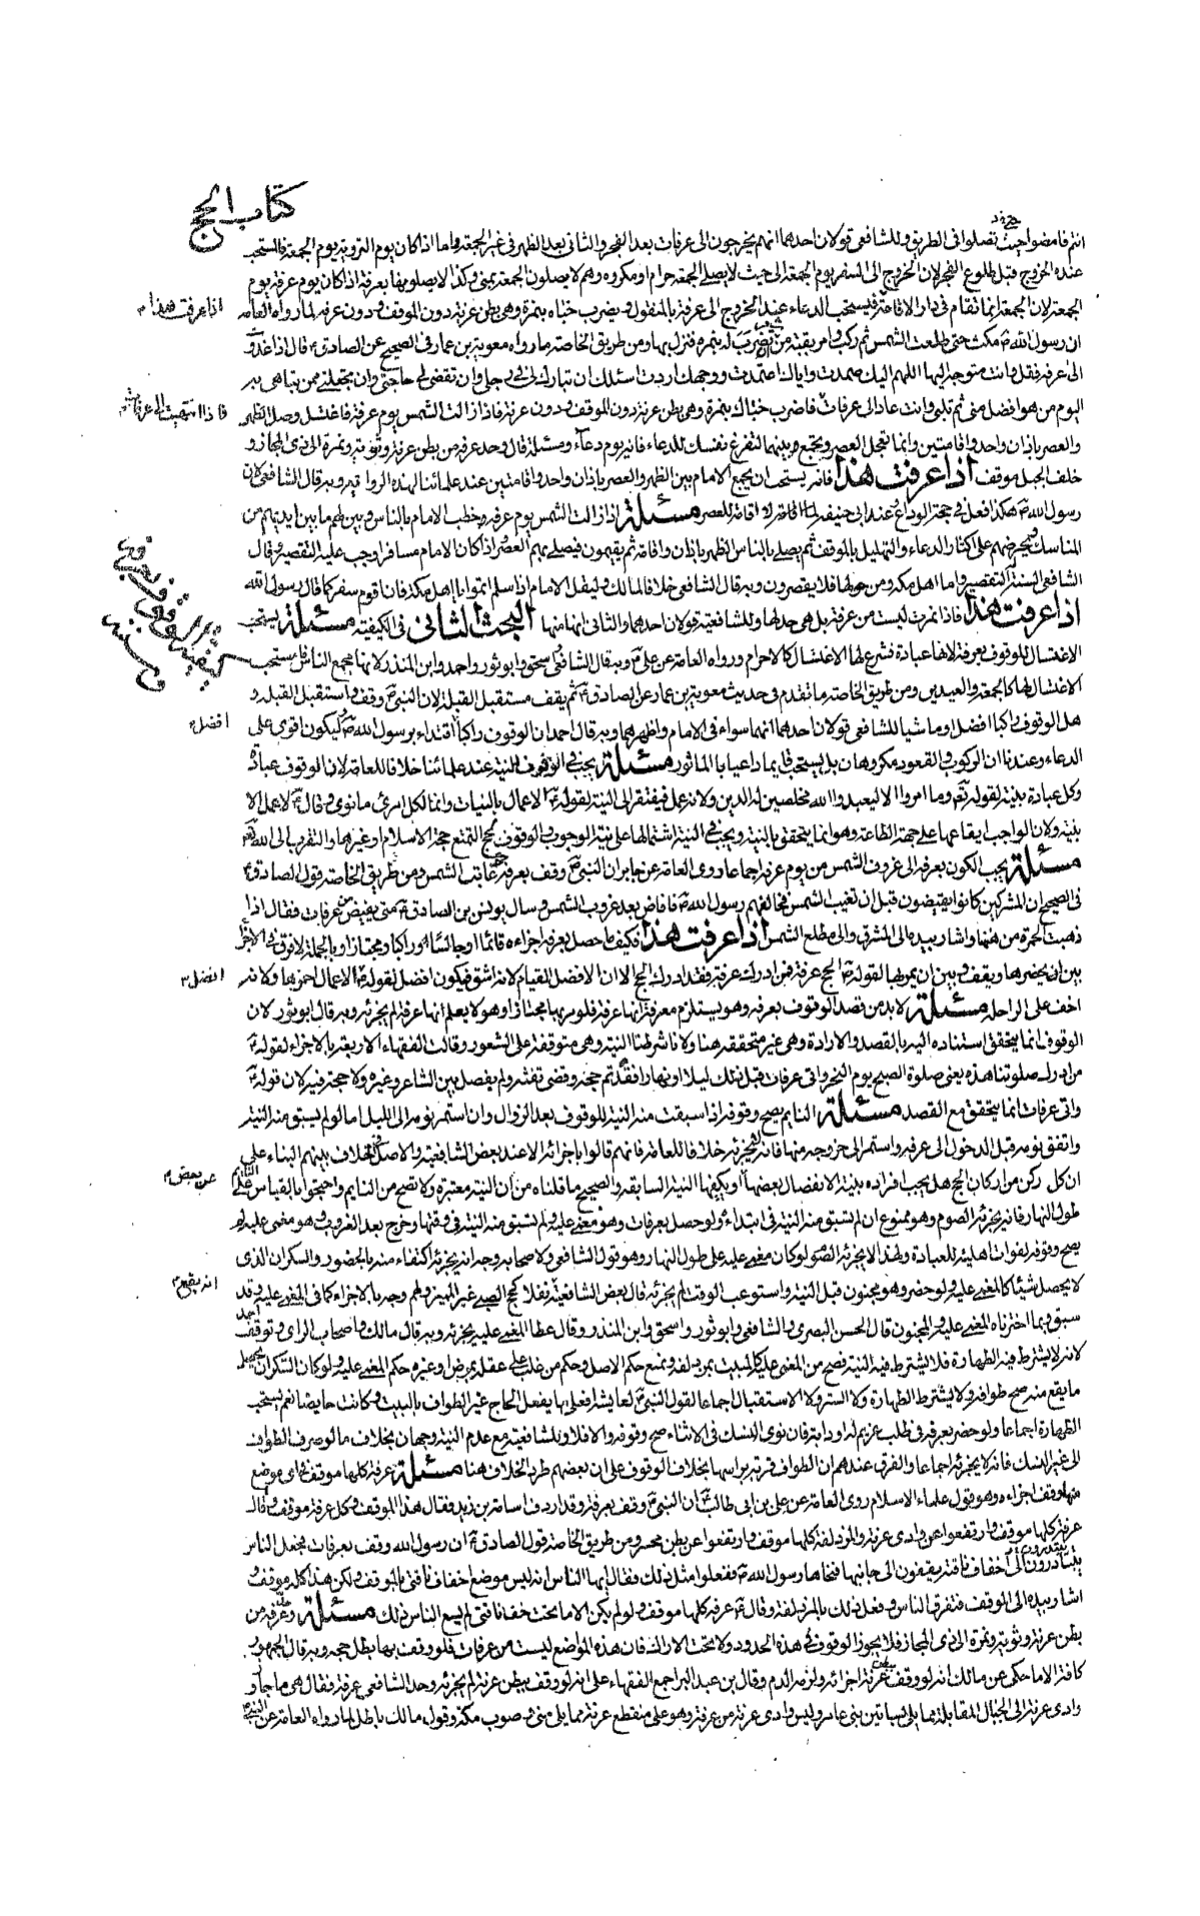 كتاب الحج
انتم فامضوا حيث تصلوا في الطريق وللشافعي قولان احدهما انهم يخرجون الى عرفات بعد الفجر والثاني بعد الظهر في غير الجمعة واما اذا كان يوم التروية يوم الجمعة فالمستحب
عنده الخروج قبل طلوع الفجر لان الخروج الى السفر يوم الجمعة الى حيث لا يصلي الجمعة حرام او مكروه وهم لا يصلون الجمعة بمنى وكذا لا يصلونها بعرفة اذا كان يوم عرفة يوم
الجمعة لان الجمعة انما تقام في دار الاقامة فيستحب الدعاء عند الخروج الى عرفة بالمنقول ويضرب خباه بنمرة وهي بطن عرنة دون الموقف ودون عرفة لما رواه العامة
اذا عرفت هذا
ان رسول الله ص مكث حتى طلعت الشمس ثم ركب وامر بقبة من شعر تضرب له بنمرة فنزل بها ومن طريق الخاصة ما رواه معوية بن عمار في الصحيح عن الصادق ع قال اذا غدوت
الى عرفة فقل وانت متوجه اليها اللهم اليك صمدت واياك اعتمدت ووجهك اردت اسئلك ان تبارك لي في رحلي وان تقضي لي حاجتي وان تجعلني ممن تباهي به
اليوم من هو افضل مني ثم تلبي وانت غاد الى عرفات فاضرب خباك بنمرة وهي بطن عرنة دون الموقف ودون عرفة فاذا زالت الشمس يوم عرفة فاغتسل وصل الظهر
فاذا انتهيت الى عرفات
والعصر باذان واحد واقامتين وانما تعجل العصر وتجمع بينهما لتفرغ نفسك للدعاء فانه يوم دعاء ومسئلة قال وحد عرفة من بطن عرنة وثوية ونمرة الى ذي المجاز و
خلف الجبل موقف اذا عرفت هذا فانه يستحب ان يجمع الامام بين الظهر والعصر باذان واحد واقامتين عند علمائنا لهذه الرواية وبه قال الشافعي لان
رسول الله ص هكذا فعل في حجة الوداع وعند ابي حنيفة لا اقامة للعصر مسئلة اذا زالت الشمس يوم عرفة وخطب الامام بالناس وبين لهم ما بين ايديهم من
المناسك ويحرضهم على اكثار الدعاء والتهليل بالموقف ثم يصلي بالناس الظهر باذان واقامة ثم يقيمون فيصلي بهم العصر واذا كان الامام مسافرا وجب عليه التقصير وقال
الشافعي السنة له التقصير واما اهل مكة ومن حولها فلا يقصرون وبه قال الشافعي خلافا لمالك وليقل الامام اذا سلم اتموا يا اهل مكة فانا قوم سفر كما قال رسول الله
اذا عرفت هذا فاذا نمرة ليست من عرفة بل هي حد لها وللشافعية قولان احدهما والثاني انها منها البحث الثاني في الكيفية مسئلة يستحب
الاغتسال للوقوف بعرفة لانها عبادة فشرع لها الاغتسال كالاحرام ورواه العامة عن علي ع وبه قال الشافعي واسحق وابو ثور واحمد وابن المنذر لانها مجمع الناس فاستحب
الاغتسال لها كالجمعة والعيدين ومن طريق الخاصة ما تقدم في حديث معوية بن عمار عن الصادق ع ثم يقف مستقبل القبلة لان النبي ص وقف واستقبل القبلة و
هل الوقوف راكبا افضل او ماشيا للشافعي قولان احدهما انهما سواء في الامام واظهرهما وبه قال احمد ان الوقوف راكبا اقتداء برسول الله ص وليكون اقوى على
افضل
الدعاء وعندنا ان الركوب والقعود مكروهان بل يستحب قايما داعيا بالماثور مسئلة يجب في الوقوف النية عند علمائنا خلافا للعامة لان الوقوف عبادة
وكل عبادة بنية لقوله تعم وما امروا الا ليعبدوا الله مخلصين له الدين ولانه عمل فيفتقر الى النية لقوله ع الاعمال بالنيات وانما لكل امرئ ما نوى وقال ع لا عمل الا
بنية ولان الواجب ايقاعها على جهة الطاعة وهو انما يتحقق بالنية ويجب في النية اشتمالها على نية الوجوب والوقوف لحج التمتع حجة الاسلام او غيرها والتقرب الى الله تع
مسئلة يجب الكون بعرفة الى غروب الشمس من يوم عرفة اجماعا روى العامة عن جابر ان النبي ص وقف بعرفة حتى غابت الشمس ومن طريق الخاصة قول الصادق ع
في الصحيح ان المشركين كانوا يفيضون قبل ان تغيب الشمس فخالفهم رسول الله ص فافاض بعد غروب الشمس وسال يونس بن الصادق ع متى يفيض من عرفات فقال اذا
ذهبت الحمرة من هنها واشار بيده الى المشرق والى مطلع الشمس اذا عرفت هذا فكيف ما حصل بعرفة اجزاءه قائما او جالسا او راكبا ومجتازا وبالجملة لا فرق في الاجزاء
بين ان يحضرها ويقف وبين ان يمر بها لقوله ع الحج عرفة فمن ادرك عرفة فقد ادرك الحج الا ان الافضل القيام لانه اشق فيكون افضل لقوله ع الاعمال احمزها ولانه
افضل
اخف على الراحلة مسئلة لا بد من قصد الوقوف بعرفة وهو يستلزم معرفة انها عرفة فلو مر بها مجتازا وهو لا يعلم انها عرفة لم يجزئه وبه قال ابو ثور لان
الوقوف انما يتحقق استناده اليه بالقصد والارادة وهي غير متحققة هنا ولانا شرطنا النية وهي متوقفة على الشعور وقالت الفقهاء الاربعة بالاجزاء لقوله ع
من ادرك صلوتنا هذه يعني صلوة الصبح يوم النحر واتى عرفات قبل ذلك ليلا او نهارا فقد تم حجه وقضى تفثه ولم يفصل بين الشاعر وغيره ولا حجة فيه لان قوله ع
واتى عرفات انما يتحقق مع القصد مسئلة النايم يصح وقوفه اذا سبقت منه النية للوقوف بعد الزوال وان استمر نومه الى الليل اما لو لم يسبق منه النية
واتفق نومه قبل الدخول الى عرفة واستمر الى خروجه منها فانه لا يجزئه خلافا للعامة فانهم قالوا باجزائه الا عند بعض الشافعية والاصل في الخلاف بينهم البناء على
ان كل ركن من اركان الحج هل يجب افراده بنية لانفصال بعضها او يكفيها النية السابقة والصحيح ما قلناه من ان النية معتبرة ولا تصح من النايم واحتجوا بالقياس على النائم
عن بعض
طول النهار فانه يجزئه الصوم وهو ممنوع ان لم تسبق منه النية في ابتداءه ولو حصل بعرفات وهو مغمى عليه ولم تسبق منه النية في وقتها وخرج بعد الغروب وهو مغمى عليه لم
يصح وقوفه لفوات اهليته للعبادة ولهذا لا يجزئه الصوم لو كان مغمى عليه على طول النهار وهو قول الشافعي ولاصحابه وجه انه يجزئه اكتفاء منه بالحضور والسكران الذي
لا يحصل شيئا كالمغمى عليه ولو حضر وهو مجنون قبل النية واستوعب الوقت لم يجزئه قال بعض الشافعية نفلا كحج الصبي غير المميز ولهم وجه بالاجزاء كما في المغمى عليه وقد
انه يقع
سبق وبما اخترناه المغمى عليه والمجنون قال الحسن البصري والشافعي وابو ثور واسحق وابن المنذر وقال عطا المغمى عليه يجزئه وبه قال مالك واصحاب الراي وتوقف احمد
لانه لا يشترط فيه الطهارة فلا يشترط فيه النية فصح من المغمى عليه كالمبيت بمزدلفة ويمنع حكم الاصل وحكم من غلب على عقله بمرض او غيره حكم المغمى عليه ولو كان السكران يحصل
ما يقع منه صح طوافه ولا يشترط الطهارة ولا الستر ولا الاستقبال اجماعا لقول النبي ص لعايشة افعلي ما يفعل الحاج غير الطواف بالبيت وكانت حايضا نعم يستحب
الطهارة اجماعا ولو حضر بعرفة في طلب غريم له او دابة فان نوى النسك في الاثناء صح وقوفه والا فلا وللشافعية مع عدم النية وجهان بخلاف ما لو صرف الطواف
الى غير النسك فانه لا يجزئه اجماعا والفرق عندهم ان الطواف قربة براسها بخلاف الوقوف على ان بعضهم طرد الخلاف هنا مسئلة عرفة كلها موقف في اي موضع
منها وقف اجزاءه وهو قول علماء الاسلام روى العامة عن علي بن ابي طالب ع ان النبي ص وقف بعرفة وقد اردف اسامة بن زيد فقال هذا الموقف وكل عرفة موقف وقال
عرفة كلها موقف وارتفعوا عن وادي عرنة والمزدلفة كلها موقف وارتفعوا عن بطن محسر ومن طريق الخاصة قول الصادق ع ان رسول الله وقف بعرفات فجعل الناس
يبتدرون الى اخفاف ناقته يقفون الى جانبها فنحاها رسول الله ص ففعلوا مثل ذلك فقال ايها الناس انه ليس موضع اخفاف ناقتي بالموقف ولكن هذا كله موقف و
اشار بيده الى الموقف فتفرق الناس وفعل ذلك بالمزدلفة وقال ع عرفة كلها موقف ولو لم يكن الا ما تحت خف ناقتي لم يسع الناس ذلك مسئلة وحد عرفة من
بطن عرنة وثوية ونمرة الى ذي المجاز فلا يجوز الوقوف في هذه الحدود ولا تحت الاراك فان هذه المواضع ليست من عرفات فلو وقف بها بطل حجه وبه قال الجمهور
كافة الا ما حكي عن مالك انه لو وقف ببطن عرنة اجزائه ولزمه الدم وقال بن عبد البر اجمع الفقهاء على انه لو وقف ببطن عرنة لم يجزئه وحد الشافعي عرفة فقال هي ما جاوز
وادي عرنة الى الجبال المقابلة مما يلي بساتين بني عامر وليس وادي عرنة من عرفة وهو على منقطع عرفة مما يلي منى وصوب مكة وقول مالك باطل لما رواه العامة عن النبي ص